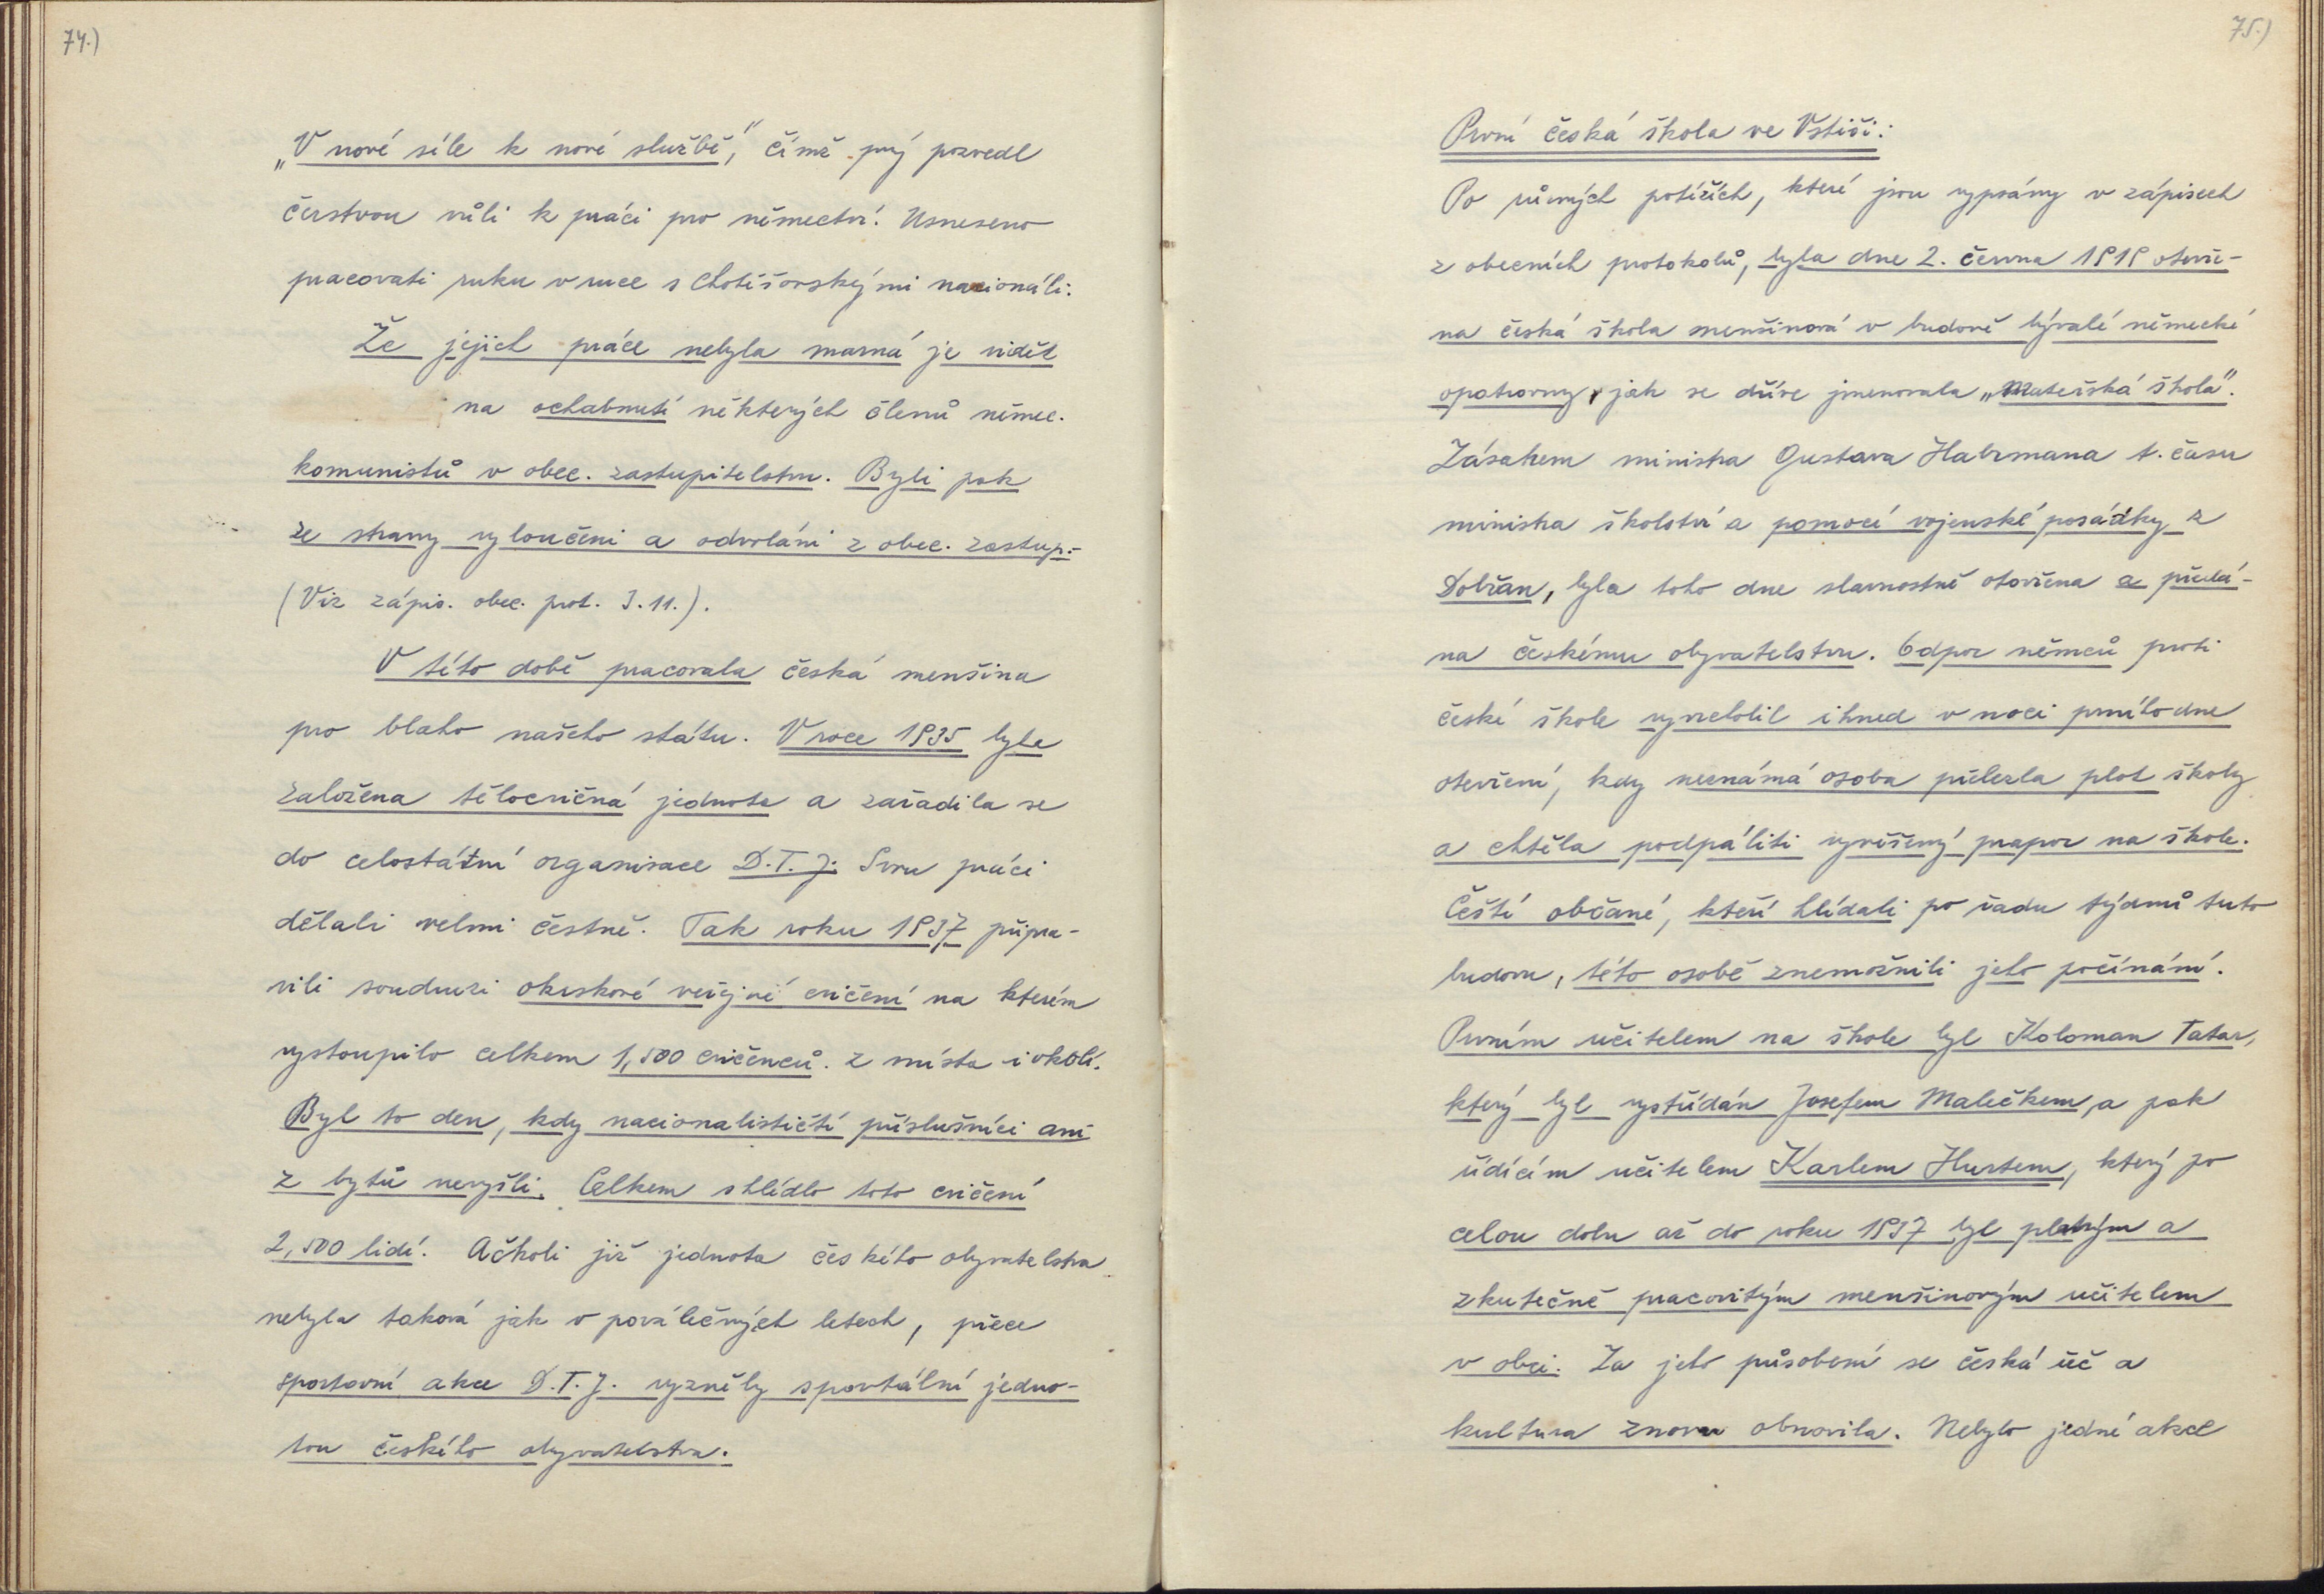 74.)
„V nové síle k nové službě,“ čímž prý pozvedl
čerstvou vůli k práci pro němectví. Usneseno
pracovati ruku v ruce s Chotěšovskými nacionáli.
Že jejich práce nebyla marná je vidět
na ochabnutí některých členů němec.
komunistů v obec. zastupitelstvu. Byli pak
ze strany vyloučeni a odvoláni z obec. zastup.-
(Viz zápis. obec. prot. I.11.).
V této době pracovala česká menšina
pro blaho našeho státu. V roce 1935 byla
založena tělocvičná jednota a zařadila se
do celostátní organisace D.T.J. Svou práci
dělali velmi čestně. Tak roku 1937 připra-
vili soudruzi okrskové veřejné cvičení na kterém
vystoupilo celkem 1,500 cvičenců. z místa i okolí.
Byl to den, kdy nacionalističtí příslušníci ani
z bytů nevyšli. Celkem shlédlo toto cvičení
2,500 lidí. Ačkoli již jednota českého obyvatelstva
nebyla taková jak v poválečných letech, přece
sportovní akce D.T.J. vyzněly spontální jedno-
tou českého obyvatelstva.
75.)
První česká škola ve Vstiši:
Po různých potížích, které jsou vypsány v zápisech
z obecních protokolů, byla dne 2. června 1919 otevře-
na česká škola menšinová v budově bývalé německé
opatrovny, jak se dříve jmenovala „Mateřská škola“.
Zásahem ministra Gustava Habrmana t. času
ministra školství a pomocí vojenské posádky z
Dobřan, byla toho dne slavnostně otevřena a předá-
na českému obyvatelstvu. Odpor němců proti
české škole vyvrcholil ihned v noci prvního dne
otevření, kdy neznámá osoba přelezla plot školy
a chtěla podpáliti vyvěšený prapor na škole.
Čeští občané, kteří hlídali po řadu týdnů tuto
budovu, této osobě znemožnili jeho počínání.
Prvním učitelem na škole byl Koloman Tatar,
který byl vystřídán Josefem Malečkem, a pak
řídícím učitelem Karlem Hurtem, který po
celou dobu až do roku 1937 byl platným a
zkutečně pracovitým menšinovým učitelem
v obci. Za jeho působení se česká řeč a
kultura znovu obnovila. Nebylo jedné akce